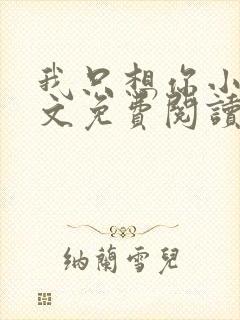 我只想你小
文免費閱讀
納蘭雪兒